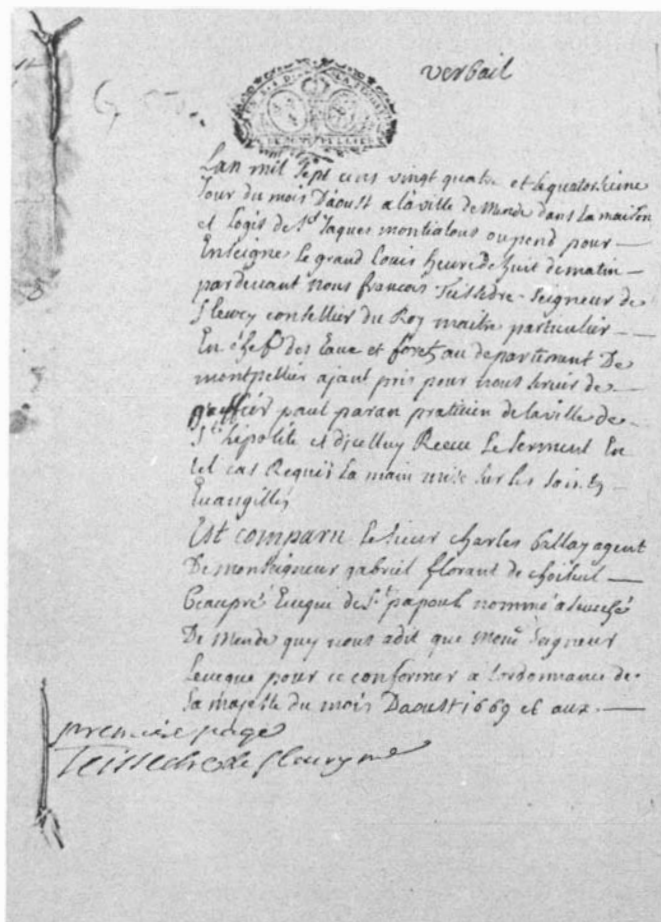 verbail
Lan mil sept cens vingt quatre et le quatorsieme
Jour du mois Daoust a la ville de Mende dans la maison
et Logis de Sr Jaques montialous ou pend pour
Enseigne le grand Louis heure de huit de matin
pardevant nous francois Teissedre Seigneur de
fleury consellier du Roy maitre particulier
En chef des Eaux et foretz au departement De
montpellier ajant pris pour nous servir de
greffier paul paran praticien de la ville de
St hipolite et dicelluy Receu le serment En
tel cas Requis la main mise sur les saints
Evangilles
Est comparu le sieur charles gallay agent
De monseigneur gabriel florant de choiseul
Beaupré Eveque de St papoul nommé a leveché
De mende quy nous a dit que mond Seigneur
Leveque pour ce conformer a Lordonnance de
Sa majesté du mois Daoust 1669 et aux
premiere page
Teissedre de fleury me